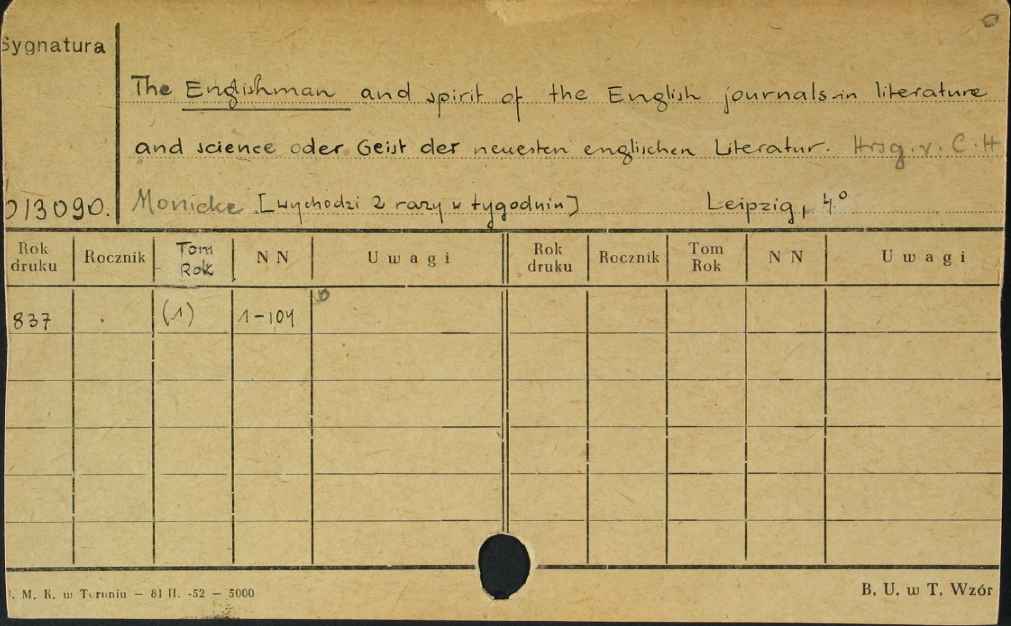 Sygnatura
The Englishman and spirit of the English journals in literature
and science oder Geist der neuesten englischen Literatur. Hrsg. v. C. H
013090. Monicke [wychodzi 2 razy w tygodniu] Leipzig, 4.°
Rok druku Rocznik Tom Rok N N Uwagi Rok druku Rocznik Tom Rok N N Uwagi
837 (1) 1-104
. M. K. w Toruniu — 81 II. -52 — 5000 B. U. w T. Wzór